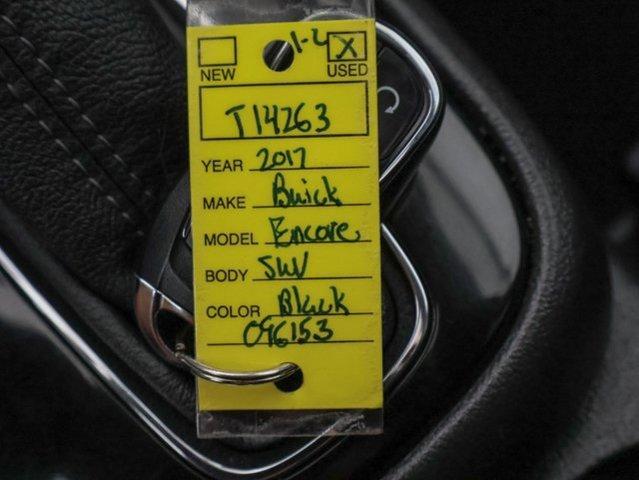 1-4 X
NEW USED
T14263
YEAR 2017
MAKE Buick
MODEL Encore
BODY SUV
COLOR Black
096153